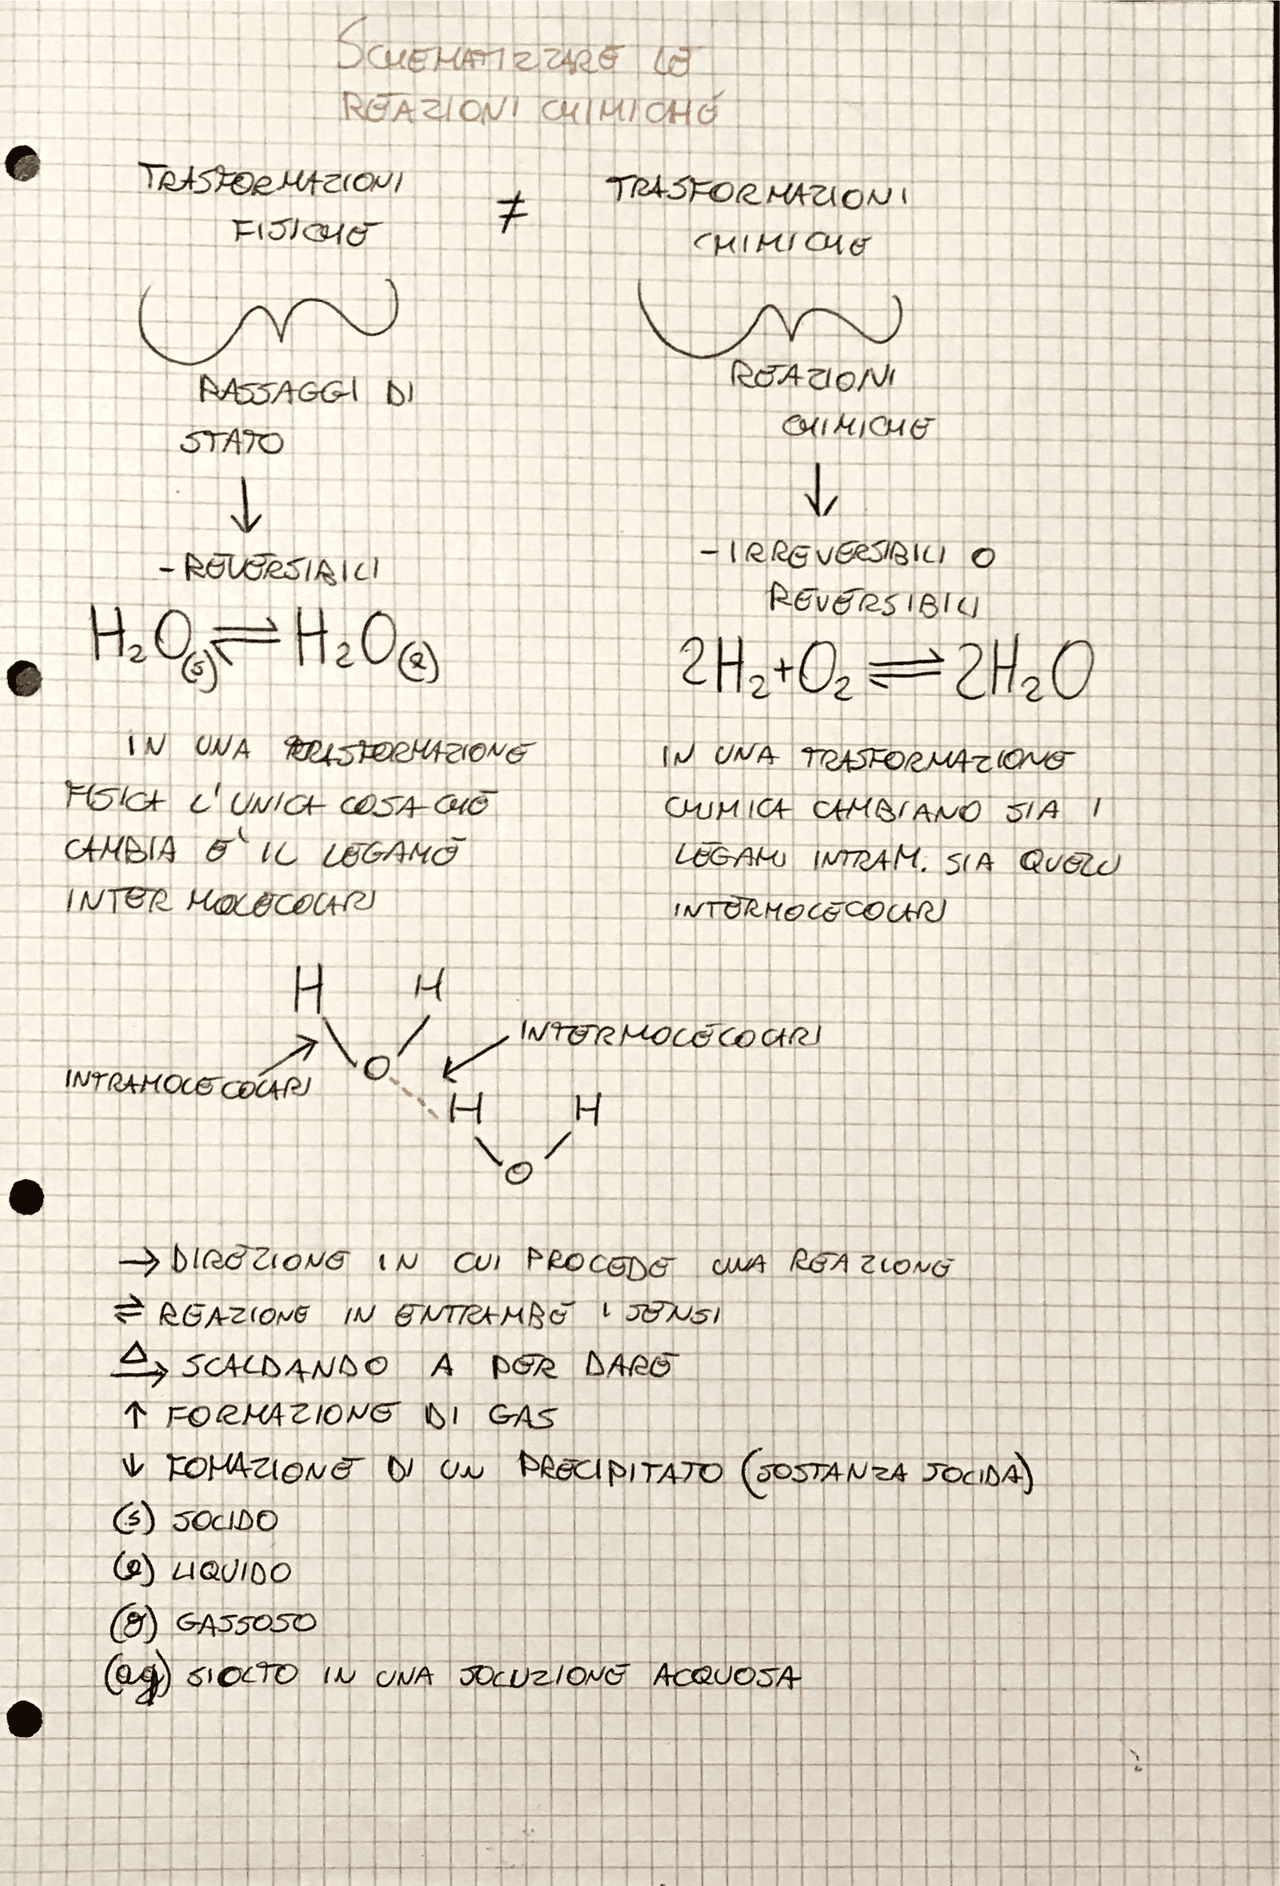 SCHEMATIZZARE LE
REAZIONI CHIMICHE
TRASFORMAZIONI
FISICHE
≠
TRASFORMAZIONI
CHIMICHE
PASSAGGI DI
STATO
↓
-REVERSIBILI
H₂O(s) ⇌ H₂O(l)
IN UNA TRASFORMAZIONE
FISICA L'UNICA COSA CHE
CAMBIA E' IL LEGAME
INTERMOLECOLARI
REAZIONI
CHIMICHE
↓
-IRREVERSIBILI O
REVERSIBILI
2H₂+O₂ ⇌ 2H₂O
IN UNA TRASFORMAZIONE
CHIMICA CAMBIANO SIA I
LEGAMI INTRAM. SIA QUELLI
INTERMOLECOLARI
H H
INTERMOLECOLARI
O
INTRAMOLECOLARI
H H
O
→ DIREZIONE IN CUI PROCEDE UNA REAZIONE
⇌ REAZIONE IN ENTRAMBE I SENSI
Δ→ SCALDANDO A PER DARE
↑ FORMAZIONE DI GAS
↓ FOMAZIONE DI UN PRECIPITATO (SOSTANZA SOLIDA)
(s) SOLIDO
(l) LIQUIDO
(g) GASSOSO
(aq) SIOLTO IN UNA SOLUZIONE ACQUOSA